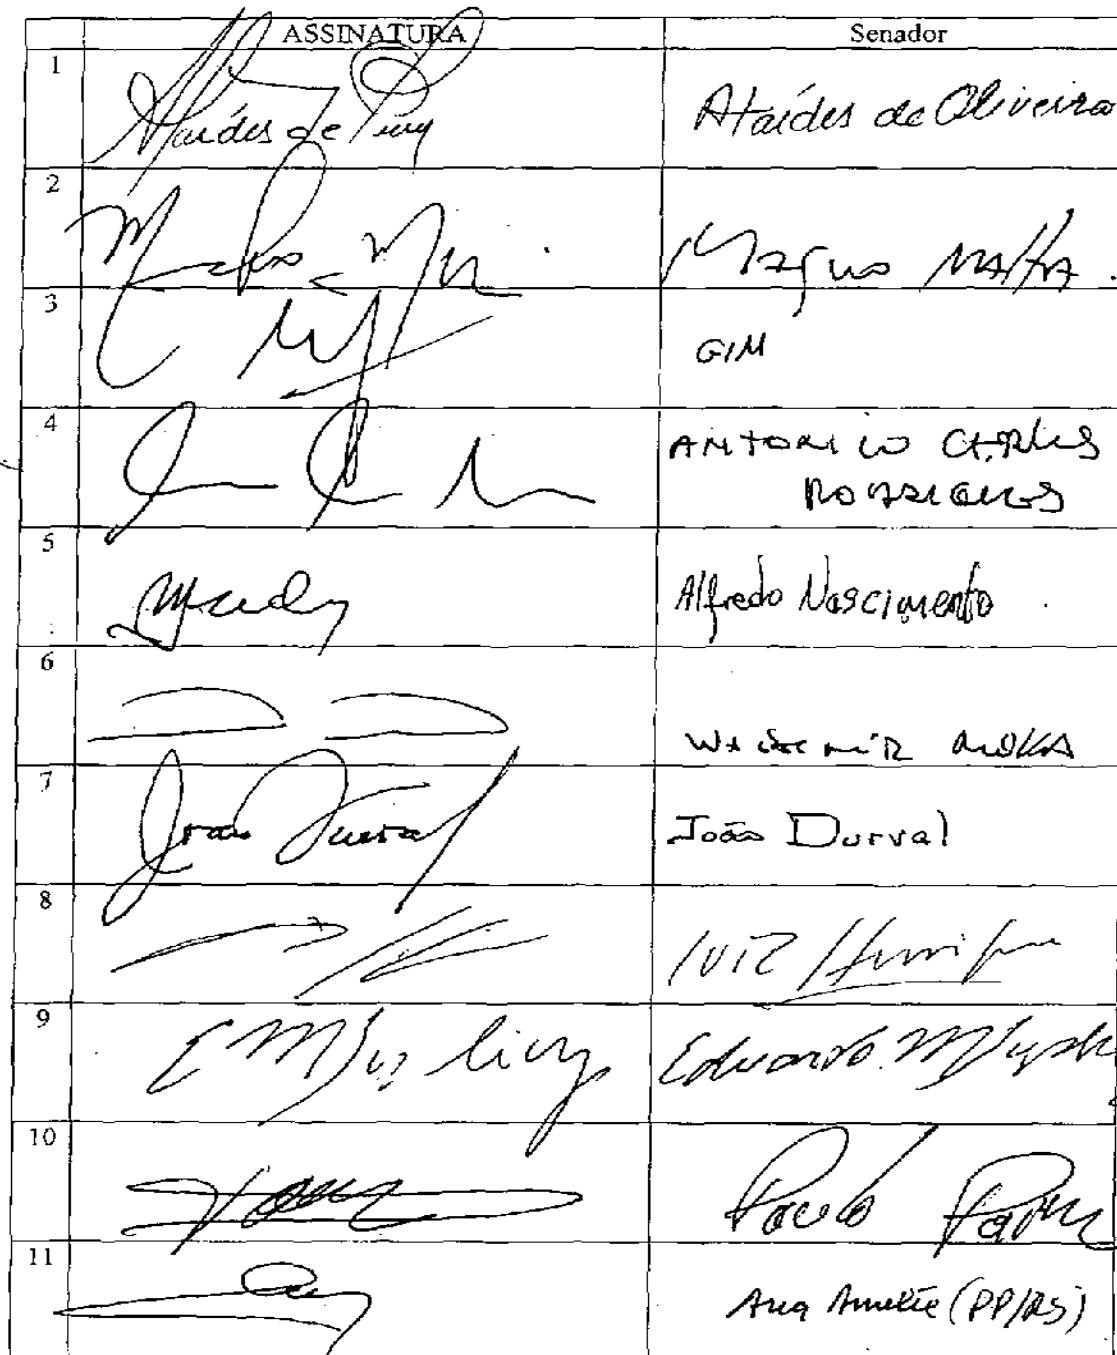 ASSINATURA Senador
1 Ataídes de Oliveira
2 Magno Malta.
3 GIM
4 ANTONIO CARLOS
RODRIGUES
5 Alfredo Nascimento.
6 Waldemir MOKA
7 João Durval João Durval
8 LUIZ Henrique
9 Eduardo M Suplicy
10 Paulo Paim
11 Ana Amélia (PP/RS)